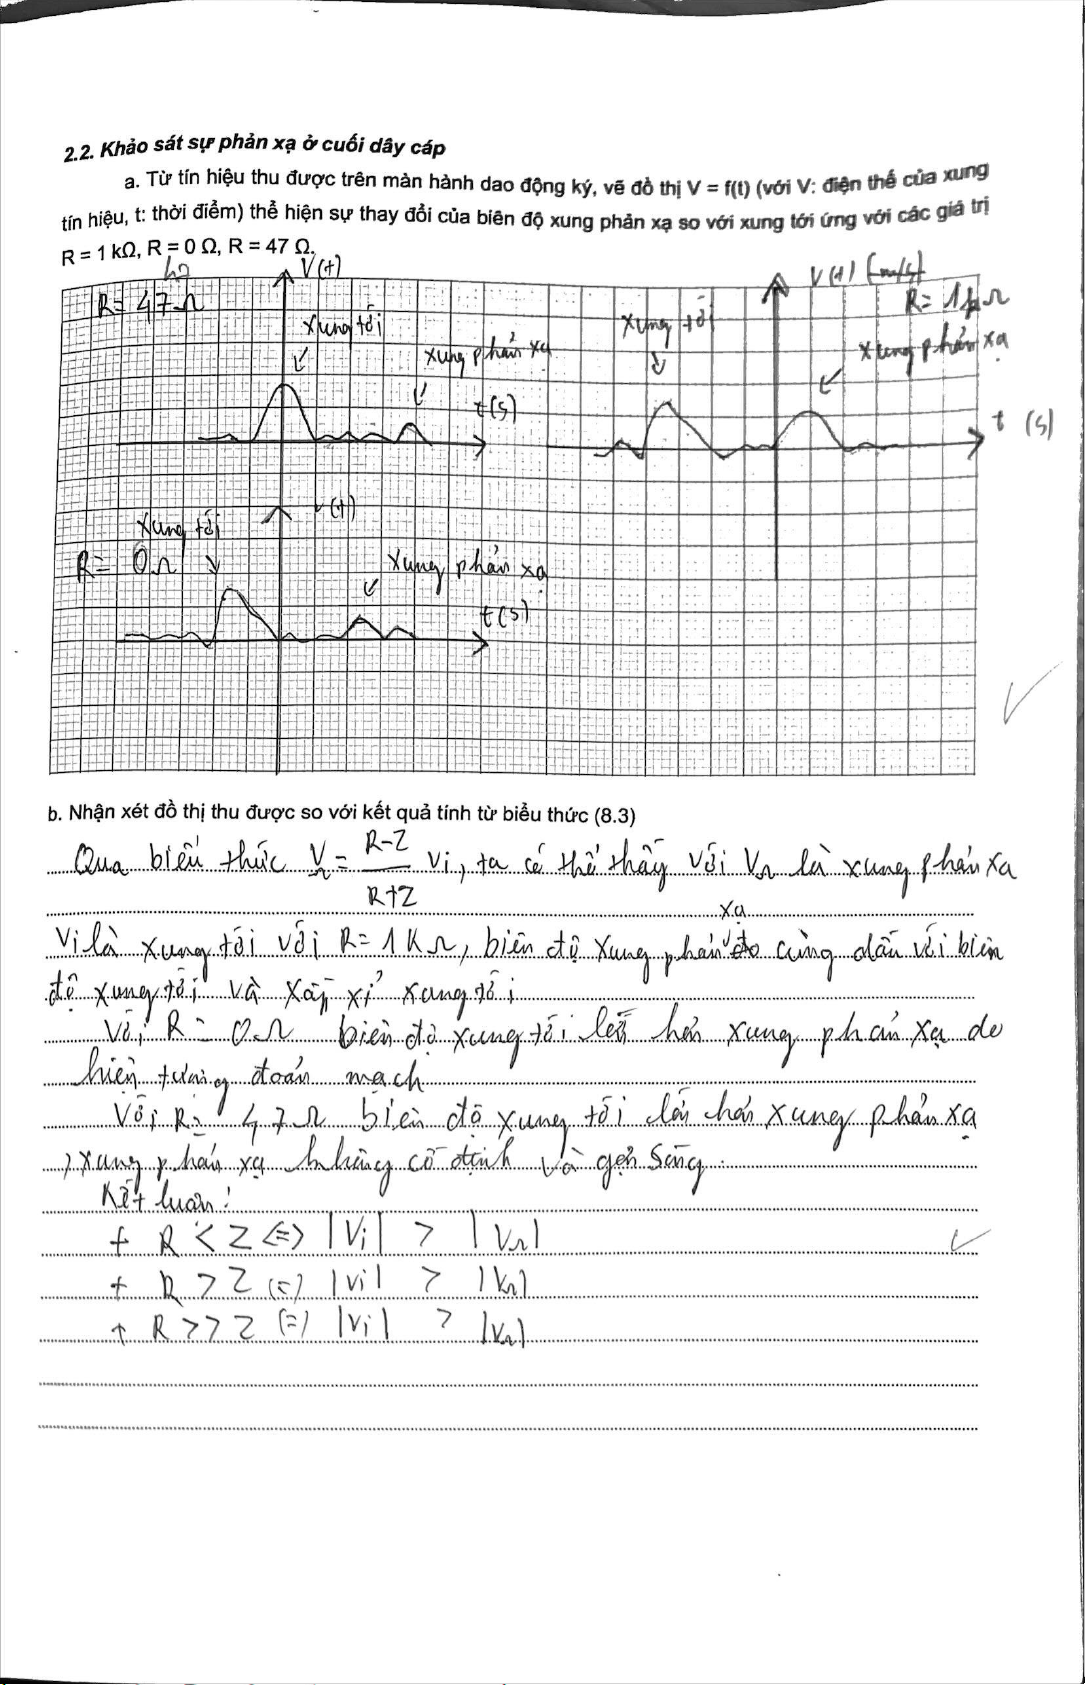 2.2. Khảo sát sự phản xạ ở cuối dây cáp
a. Từ tín hiệu thu được trên màn hành dao động ký, vẽ đồ thị V = f(t) (với V: điện thế của xung
tín hiệu, t: thời điểm) thể hiện sự thay đổi của biên độ xung phản xạ so với xung tới ứng với các giá trị
R = 1 kΩ, R = 0 Ω, R = 47 Ω.
47
R = 47Ω
V(t)
xung tới
xung phản xạ
t(s)
V(t) (m/s)
R = 1kΩ
xung tới
xung phản xạ
t (s)
V(t)
xung tới
R = 0Ω
xung phản xạ
t(s)
b. Nhận xét đồ thị thu được so với kết quả tính từ biểu thức (8.3)
Qua biểu thức Vr = (R-Z)/(R+Z) Vi, ta có thể thấy với Vr là xung phản xạ
Vi là xung tới với R = 1KΩ, biên độ xung phản xạ cùng dấu với biên
độ xung tới và xấp xỉ xung tới
Với R = 0Ω biên độ xung tới lớn hơn xung phản xạ do
hiện tượng đoản mạch
Với R = 47Ω biên độ xung tới lớn hơn xung phản xạ
, xung phản xạ không cố định và gợn sóng.
Kết luận:
+ R < Z (=) |Vi| > |Vr|
+ R > Z (=) |Vi| > |Vr|
+ R >> Z (=) |Vi| > |Vr|